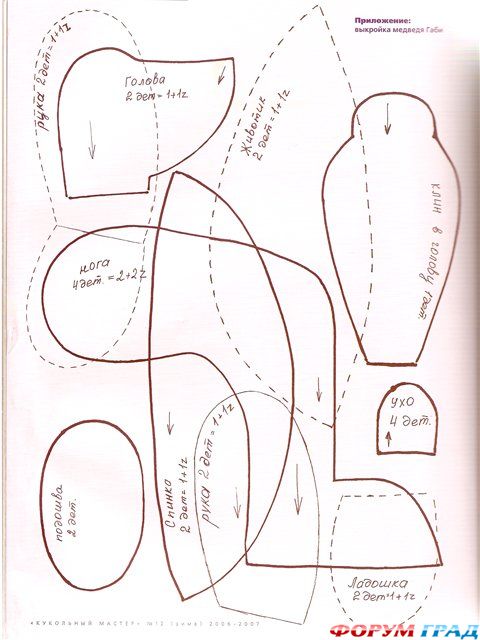 Приложение:
выкройка медведя Габи
рука 2 дет = 1+1z
Голова
2 дет = 1+1z
Животик
2 дет = 1+1z
клин в голову 1 дет.
нога
4 дет. = 2+2z
ухо
4 дет.
подошва
2 дет.
Спинка
2 дет = 1+1z
рука 2 дет = 1+1z
Ладошка
2 дет = 1+1z
«КУКОЛЬНЫЙ МАСТЕР» №12 (зима) 2006-2007
ФОРУМ ГРАД